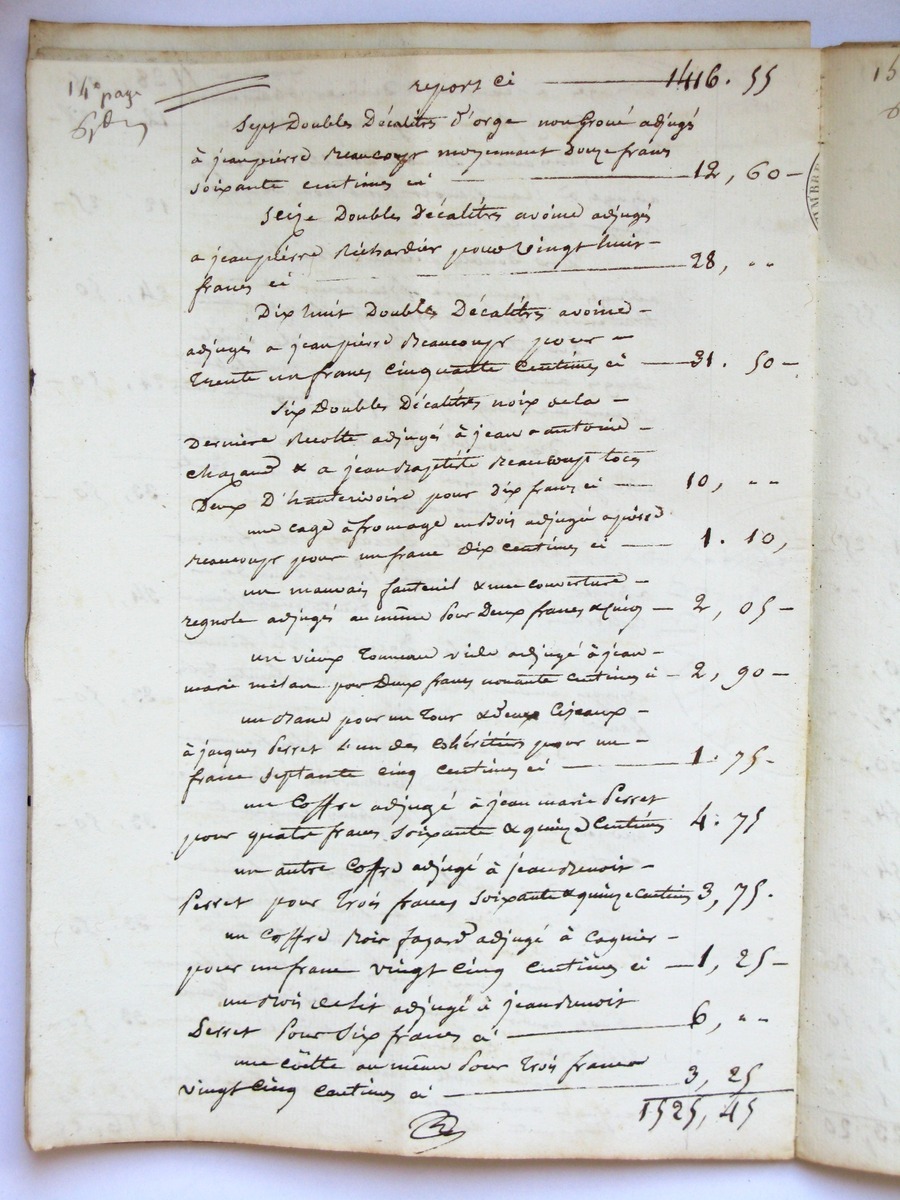 14e page
report ci 1416. 55
Sept Doubles Décalitres d'orge non Groué adjugé
à jean pierre Beaucoup moyennant Douze francs
soixante centimes ci 12, 60
Seize Doubles Décalitres avoine adjugés
a jean pierre Richardier pour vingt huit
francs ci 28, " "
Dix huit Doubles Décalitres avoine
adjugés a jean pierre Beaucoup pour
trente un francs cinquante centimes ci 31. 50
Six Doubles Décalitres noix de la
Derniere Recolte adjugés à jean antoine
chazaud & a jean Baptiste Beaucoup tous
Deux D'hauterivoire pour dix francs ci 10, " "
une cage à fromage en Bois adjugée a pierre
Beaucoup pour un franc Dix centimes ci 1. 10,
un mauvais fauteuil & une couverture
regnole adjugés au même pour Deux francs & cinq 2, 05
un vieux tonneau vide adjugé à jean
marie milan pour Deux francs nonante centimes ci 2, 90
un Banc pour un tour & deux Ciseaux
à jacques Perret l'un des cohéritiers pour un
franc septante cinq centimes ci 1. 75
un Coffre adjugé à jean marie Perret
pour quatre francs soixante & quinze centimes 4. 75
un autre Coffre adjugé à jean Benoit
Perret pour trois francs soixante & quinze centimes 3, 75.
un Coffre Bois fayard adjugé à Cagnier
pour un franc vingt cinq centimes ci 1, 25
un Bois de lit adjugé à jean Benoit
Perret Pour Six francs ci 6, " "
une coëtte au même Pour trois francs
vingt cinq centimes ci 3, 25
1525, 45
15